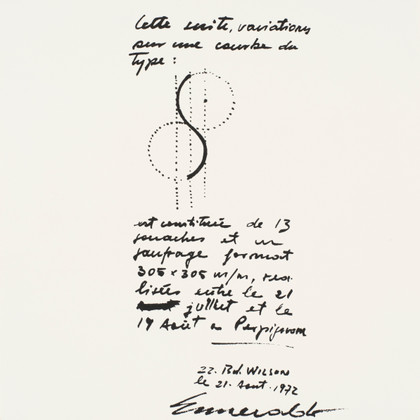 Cette suite, variations
sur une courbe du
type :
est constituée de 13
gouaches et un
gaufrage format
305 x 305 m/m, réa-
lisées entre le 21
juillet et le
19 Août à Perpignan
22. Bd. WILSON
le 21. Août. 1972